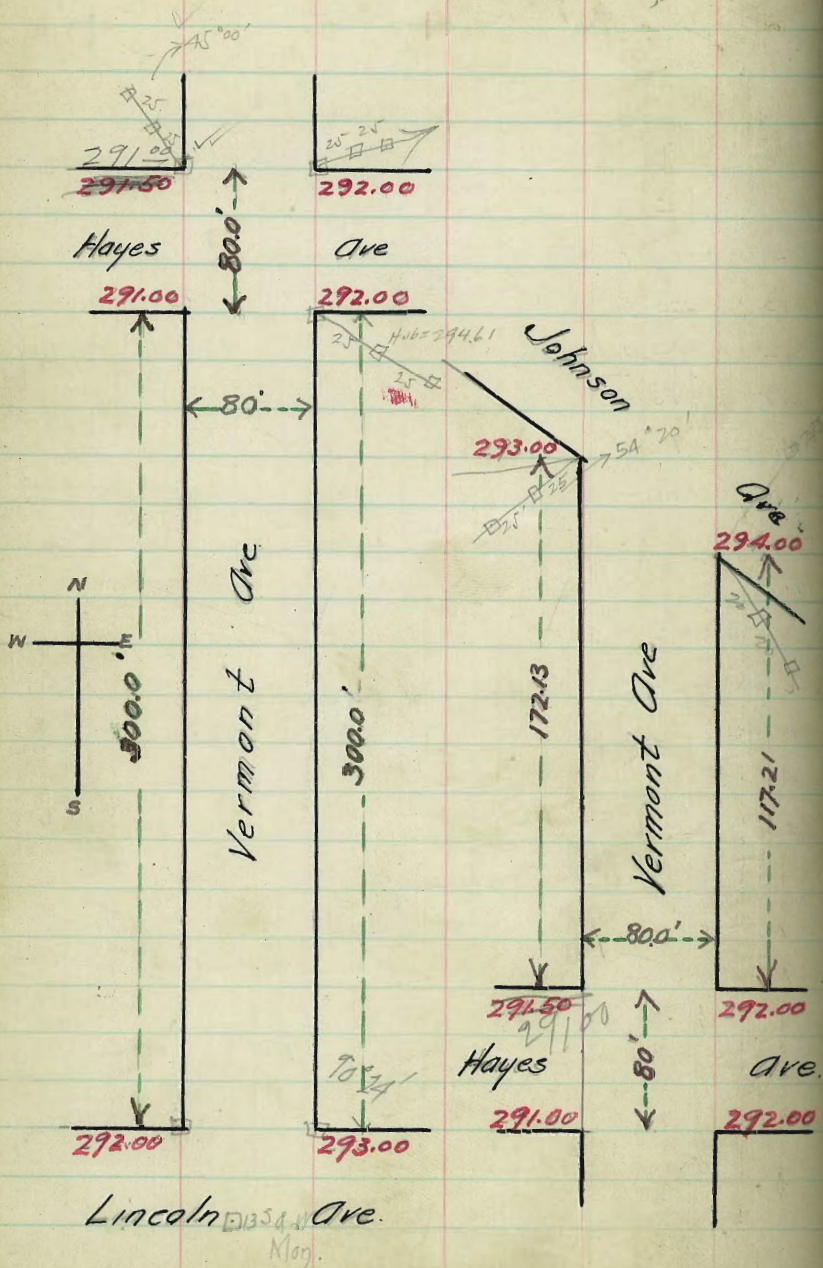 45°00'
25
25
291.00
291.50
25 25
292.00
80.0'
Hayes Ave
291.00
292.00
25
Hub=294.61
25
80'
Johnson Ave
293.00
54°20'
25
25'
294.00
N
W E
S
300.0'
Vermont Ave
300.0'
172.13
Vermont Ave
117.21
80.0'
291.50
291.00
292.00
Hayes Ave.
80'
90°24'
291.00
292.00
292.00
293.00
Lincoln Ave.
Mon.